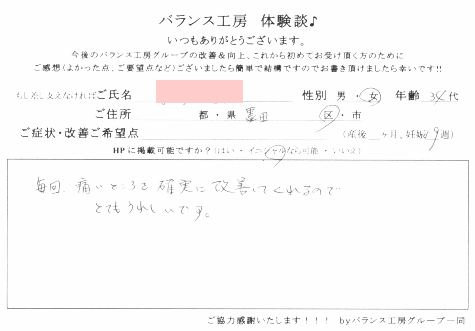 バランス工房 体験談♪
いつもありがとうございます。
今後のバランス工房グループの改善&向上、これから初めてお受け頂く方のために
ご感想(よかった点、ご要望点など)ございましたら簡単で結構ですのでお書き頂けましたら幸いです!!
もし差し支えなければご氏名 性別 男・女 年齢 34代
ご住所 都・県 墨田 区・市
ご症状・改善ご希望点 (産後 ヶ月、妊娠 9週)
HPに掲載可能ですか?(はい・イニシャルなら可能・いいえ)
毎回、痛いところを確実に改善してくれるので
とてもうれしいです。
ご協力感謝いたします!!! byバランス工房グループ一同